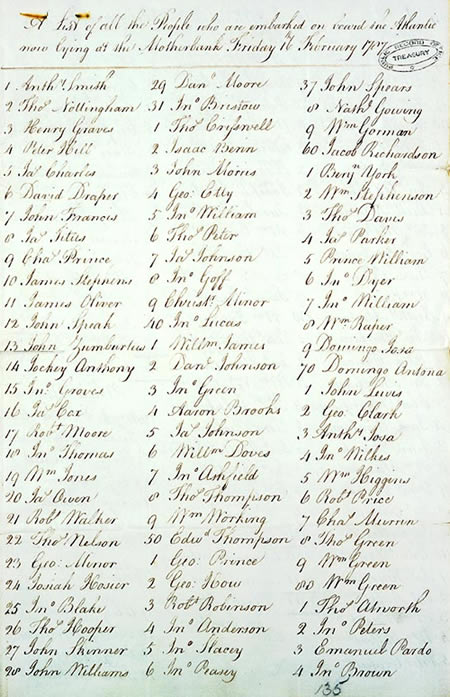 A List of all the People who are embarked on board the Atlantic
now lying at the Motherbank Friday 16 February 1787
PUBLIC RECORD OFFICE
TREASURY
1 Anthy. Smith
2 Thos. Nottingham
3 Henry Graves
4 Peter Hill
5 Jas. Charles
6 David Draper
7 John Frances
8 Jas. Titus
9 Chas. Prince
10 James Stephens
11 James Oliver
12 John Speak
13 John Zumburtus
14 Jockey Anthony
15 Jno. Groves
16 Jas. Cox
17 Robt. Moore
18 Jno. Thomas
19 Wm. Jones
20 Jas. Owen
21 Robt. Walker
22 Thos. Nelson
23 Geo: Minor
24 Josiah Hosier
25 Jno. Blake
26 Thos. Hooper
27 John Skinner
28 John Williams
29 Danl. Moore
31 Jno. Bristow
1 Thos. Cryswell
2 Isaac Benn
3 John Morris
4 Geo: Etty
5 Jno. William
6 Thos. Peter
7 Jas. Johnson
8 Jno. Goff
9 Christr. Minor
40 Jno. Lucas
1 Willm. James
2 Danl. Johnson
3 Jno. Green
4 Aaron Brooks
5 Jas. Johnson
6 Willm. Doves
7 Jno. Ashfield
8 Thos. Thompson
9 Wm. Working
50 Edwd. Thompson
1 Geo: Prince
2 Geo: How
3 Robt. Robinson
4 Jno. Anderson
5 Jno. Stacey
6 Jno. Peasey
37 John Spears
8 Nathl. Gowing
9 Wm. Gorman
60 Jacob Richardson
1 Benjn. York
2 Wm. Stephenson
3 Thos. Davis
4 Jas. Parker
5 Prince William
6 Jno. Dyer
7 Jno. William
8 Wm. Raper
9 Domingo Josa
70 Domingo Antona
1 John Lewis
2 Geo: Clark
3 Anthy. Josa
4 Jno. Wilkes
5 Wm. Higgins
6 Robt. Price
7 Chas. Murrin
8 Thos. Green
9 Wm. Green
80 Wm. Green
1 Thos. Atsworth
2 Jno. Peters
3 Emanuel Pardo
4 Jno. Brown
35